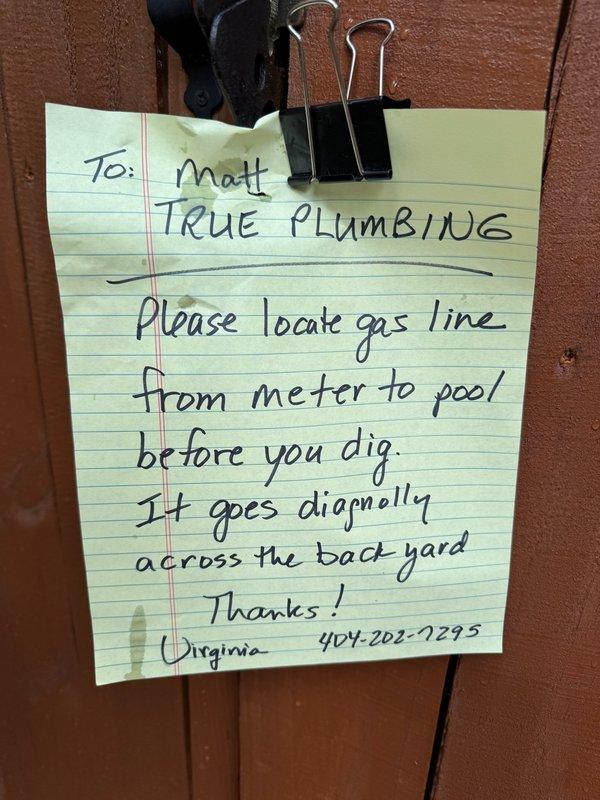 To: Matt
TRUE PLUMBING
Please locate gas line
from meter to pool
before you dig.
It goes diagnolly
across the back yard
Thanks!
Virginia 404-202-7295